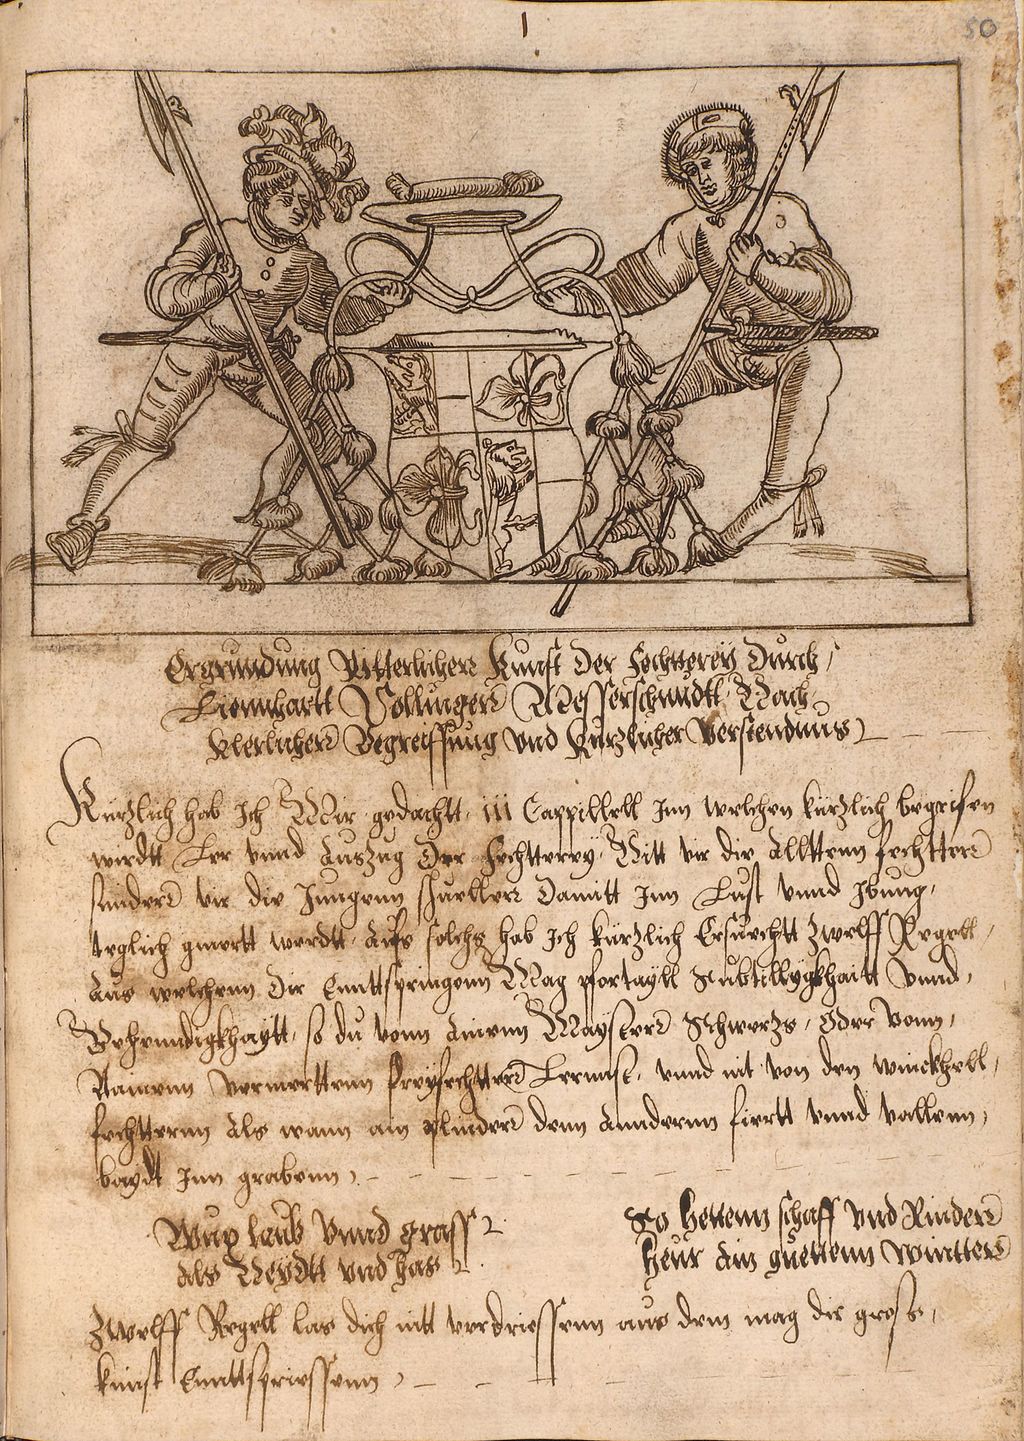 1
50
Ergrundung Ritterlicherr Kunst der Fechterey Durch
Liennhartt Sollingerr Messerschmidtt Nach
Klerlicherr Begreiffung und Kurzlicher verstendnus
Kurzlich hab Ich Mir gedachtt iii Cappittell Inn welchen kürzlich begrifen
wirdtt Ler unnd Auszug Der Fechtterey Nitt vir die Allttenn fechtterr
sunderr vir die Jungenn schuellerr Damitt Inn Lust unnd Ibung
teglich gmertt werdtt Aufs solchs hab Ich kürzlich Ersuechtt zwelff Regell
Aus welchenn Dir Enttspringenn Mag vortayll Subtillygkhaitt Unnd
Behenndigkhaytt so du vonn Ainem Maysterr Schwerzs Oder vonn
Ainem vermerttenn freyfechtterr Lernnst unnd nit von den winckhell
fechtternn Als wann ain plinderr denn Annderenn fiertt unnd vallenn
bayd Inn grabenn
Wux laub Unnd grass
als Neydtt und has
So hettenn schaff und Rinderr
heur Ain guettenn Wintterr
Zwelff Regell las dich nitt verdriessenn aus dem mag dir gross
kunst Enttspriessenn